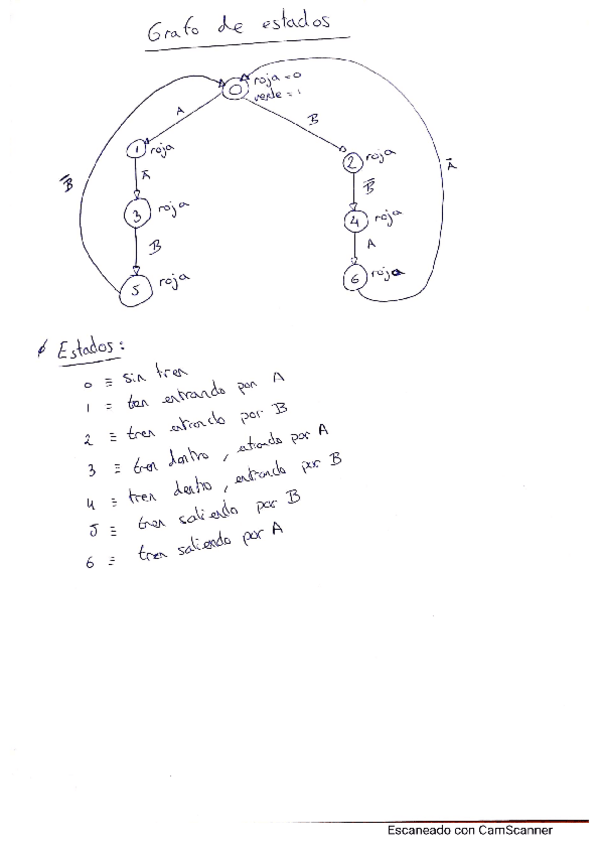 Grafo de estados
0 roja = 0
verde = 1
A
B
1 roja
2 roja
B̅
A̅
B̅
A̅
3 roja
4 roja
B
A
5 roja
6 roja
Estados:
0 ≡ sin tren
1 = tren entrando por A
2 ≡ tren entrando por B
3 ≡ tren dentro, entrando por A
4 = tren dentro, entrando por B
5 ≡ tren saliendo por B
6 = tren saliendo por A
Escaneado con CamScanner